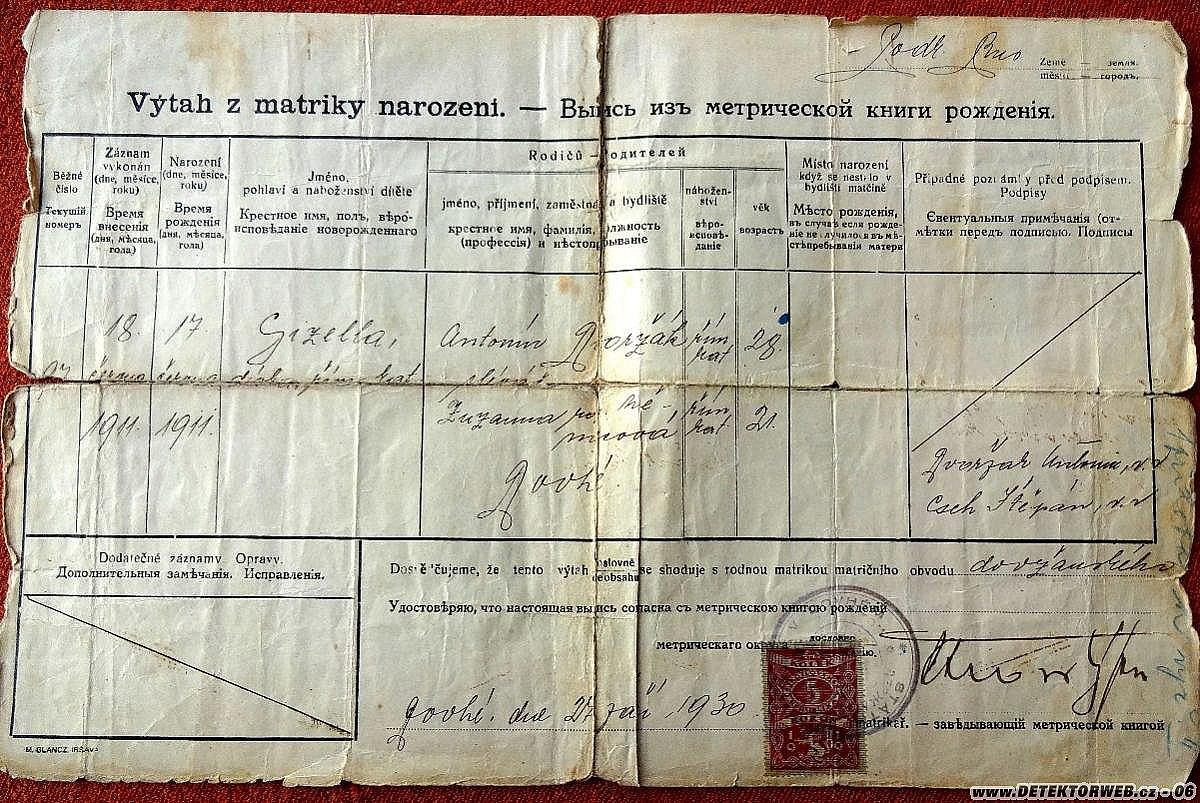 Podk. Rus
Země — земля.
město — городъ.
Výtah z matriky narození. — Выпись изъ метрической книги рожденія.
Běžné číslo
Текущій номеръ
Záznam vykonán (dne, měsíce, roku)
Время внесенія (дня, мѣсяца, гола)
Narození (dne, měsíce, roku)
Время рожденія (дня, мѣсяца, гола)
Jméno, pohlaví a náboženství dítěte
Крестное имя, полъ, вѣроисповѣданіе новорожденнаго
Rodičů — родителей
jméno, příjmení, zaměstnání a bydliště
крестное имя, фамилія, должность (профессія) и мѣстопребываніе
náboženství
вѣроисповѣданіе
věk
возрастъ
Místo narození když se nestalo v bydlišti matčině
Мѣсто рожденія, въ случаѣ если рожденіе не случилося въ мѣстѣпребыванія матери
Případné poznámky před podpisem. Podpisy
Євентуальныя примѣчанія (отмѣтки передъ подписью. Подписы
18. června 1911.
17. června 1911.
Gizella,
řím. kat
Antonín Dvořák
řím. kat
28.
Zuzanna
řím. kat
21.
Dovhé.
Dvořák Antonín, v. r
Cseh Štěpán, v. r
Dodatečné záznamy Opravy.
Дополнительныя замѣчанія. Исправленія.
Dosvědčujeme, že tento výtah doslovně / dle obsahu se shoduje s rodnou matrikou matričního obvodu dovžánského
Удостовѣряю, что настоящая выпись согласна съ метрическою книгою рожденій
метрическаго округа дословно
Dovhé. dne 27 září 1930
matrikář. — завѣдывающій метрической книгой
M. BLANCZ, IRŠAVA
www.DETEKTORWEB.cz - 06